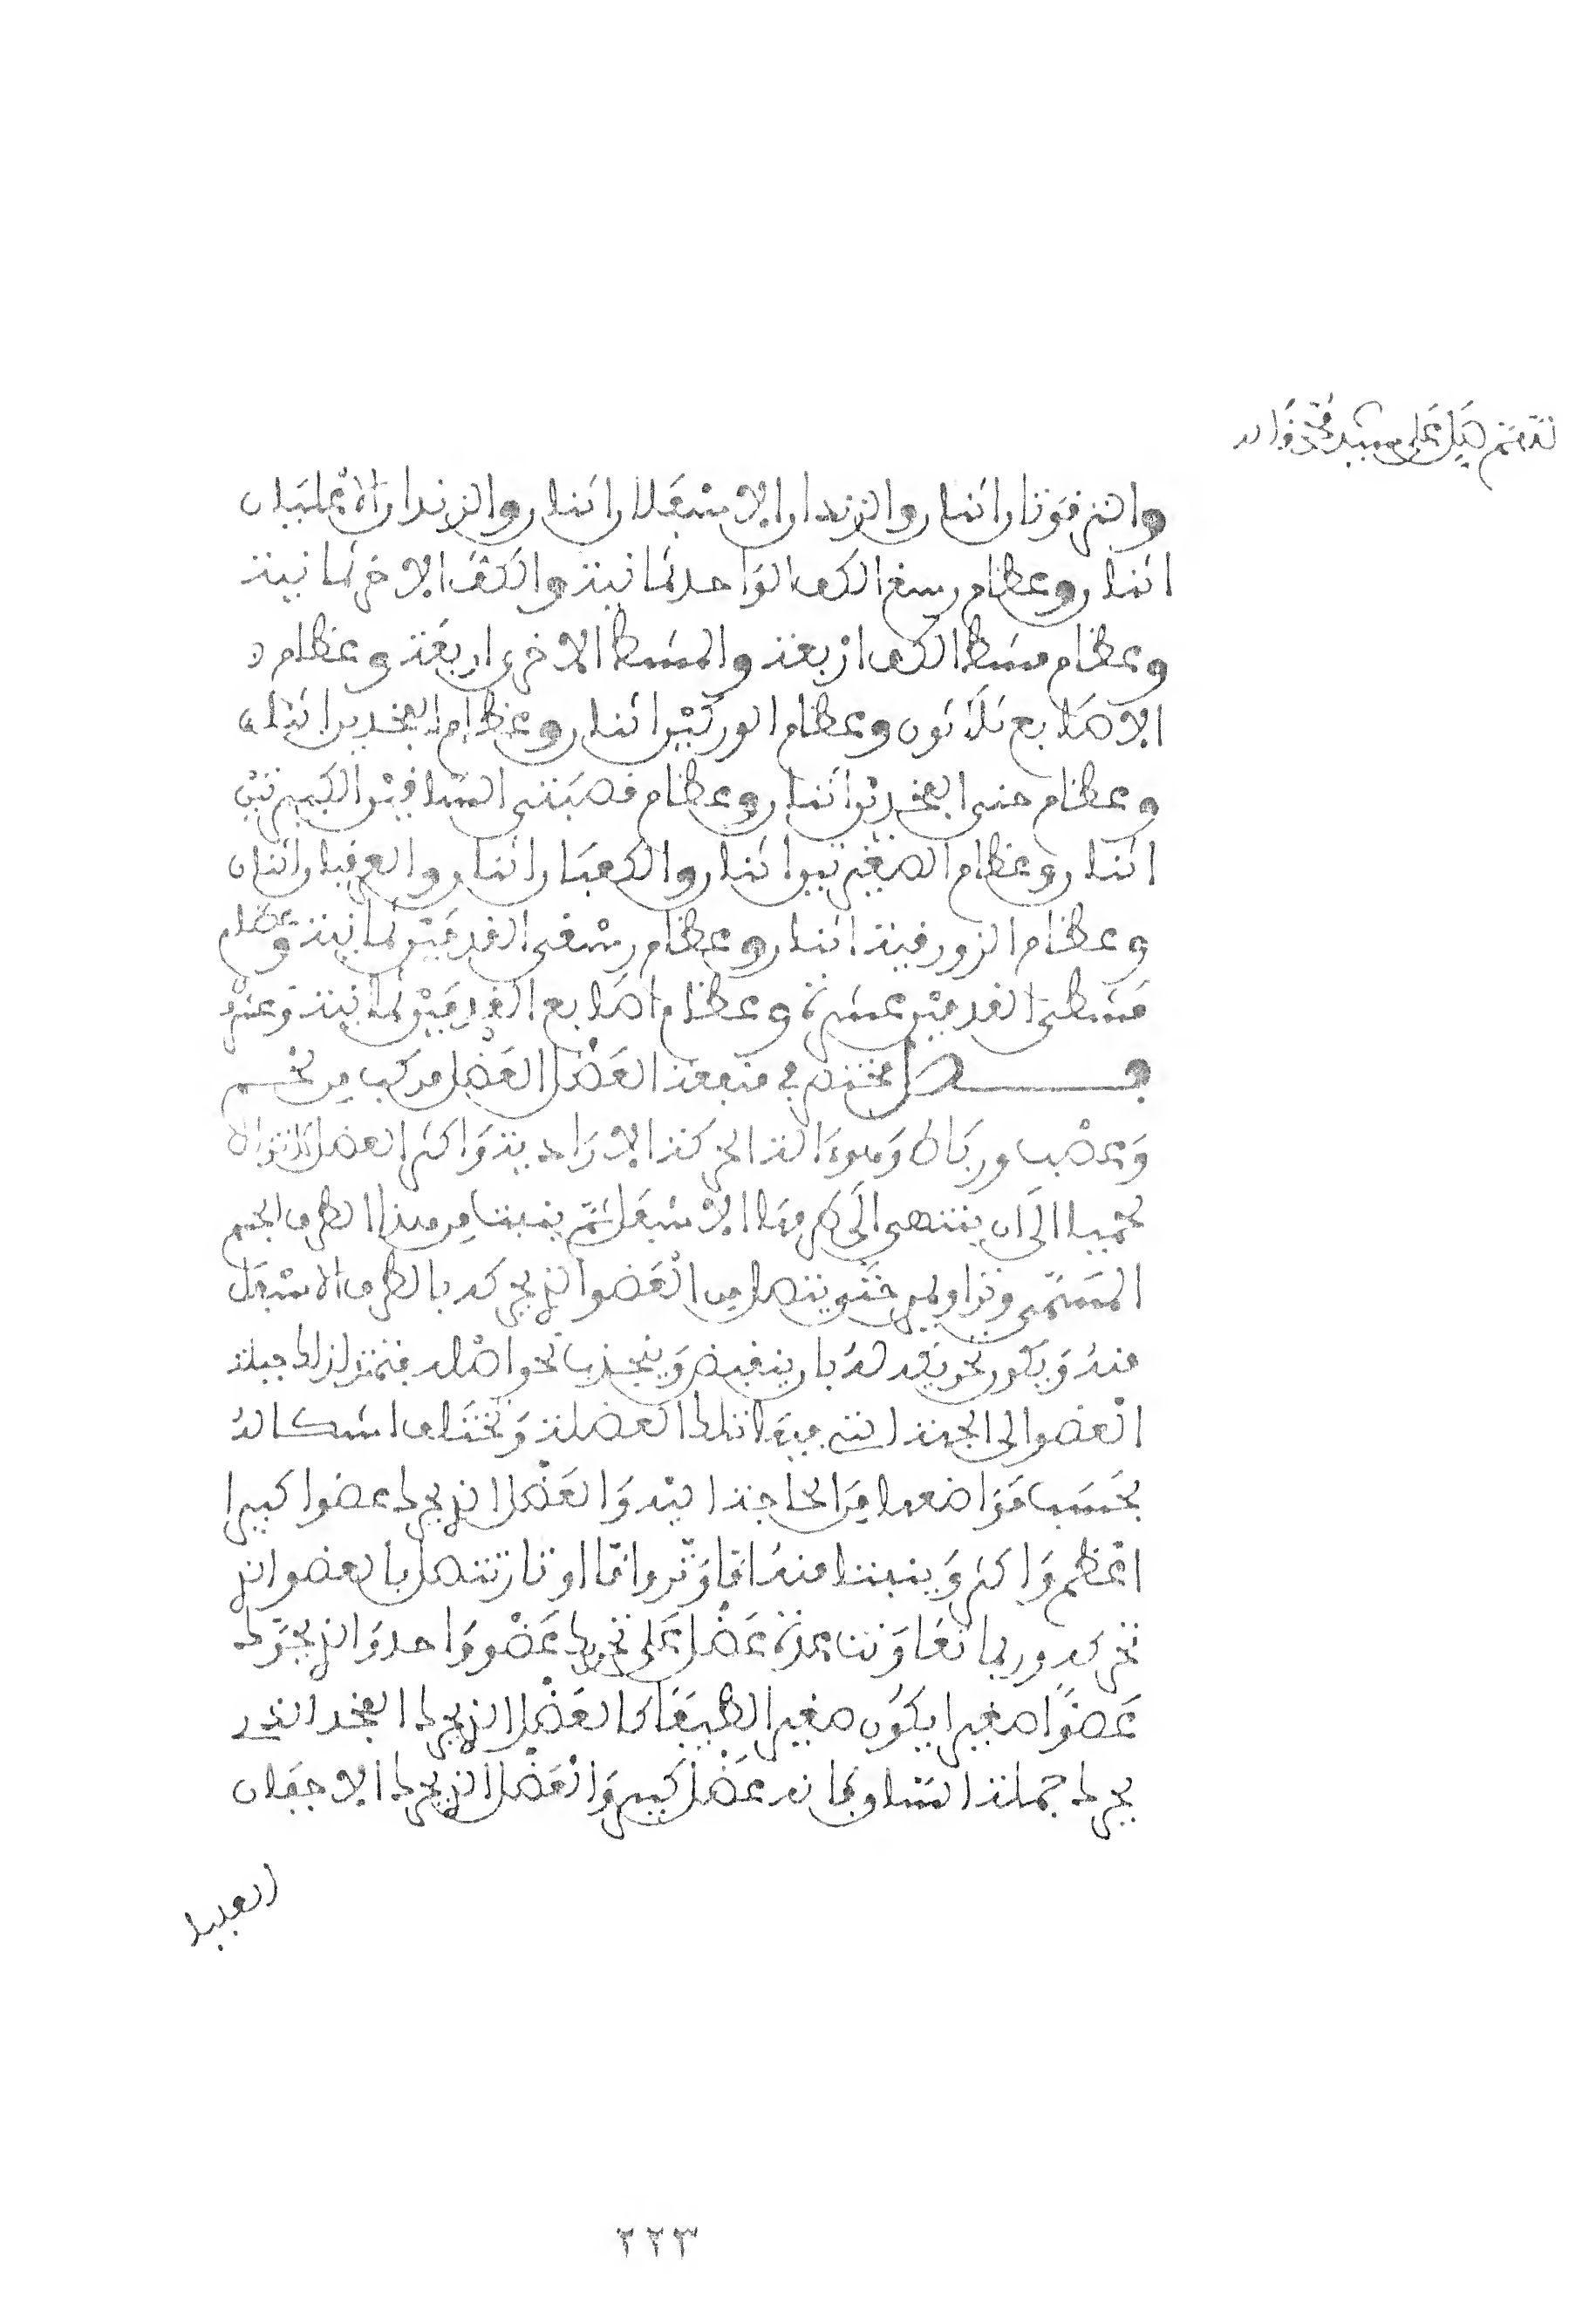 والترقوتان اثنان والزندان الاسفلان اثنان والزندان الاعليان
اثنان وعظام رسغ الكف الواحد ثمانية والكف الاخر ثمانية
وعظام مشط الكف اربعة والمشط الاخر اربعة وعظام
الاصابع ثلاثون وعظام الوركين اثنان وعظام الفخدين اثنان
وعظام عيني الفخدين اثنان وعظام قصبتي الساقين الكبيرتين
اثنان وعظام الصغيرتين اثنان والكعبان اثنان والعرقبان اثنان
وعظام الزورقية اثنان وعظام رسغي القدمين ثمانية وعظام
مشطي القدمين عشرة وعظام اصابع القدمين ثمانية وعشرو
فصل مختصر في منفعة العضل العضل مركب من لحم
وعصب ورباط وهو ءالة الحركة الارادية واكثر العضل
لحميا الى ان ينتهي الى طرفها الاسفل ثم ينبت من هذا الطرف الجسم
المسمى وترا وليس حتى يتصل من العضو الذي يحركه بالطرف الاسفل
منه ويكون تحريكه له بان ينقبض وينجذب نحو اصله فتمتد لذلك جملة
العضو الى الجهة التي فيها تلك العضلة وتختلف اشكاله
بحسب مواضعها من الحاجة اليه والعضل الذي يحرك عضوا كبيرا
اعظم واكثر وينبت منه اما وتر واما اوتار تتصل بالعضو الذي
تحركه وربما تعاونت عدة عضل على تحريك عضو واحد والذي يحرك
عضوا صغيرا يكون صغيرا لطيفا كالعضل الذي يحرك الفخد الذي
يحرك جملة الساق فانه عضل كبير والعضل الذي يحرك الاجفان
العليا
٢٢٣